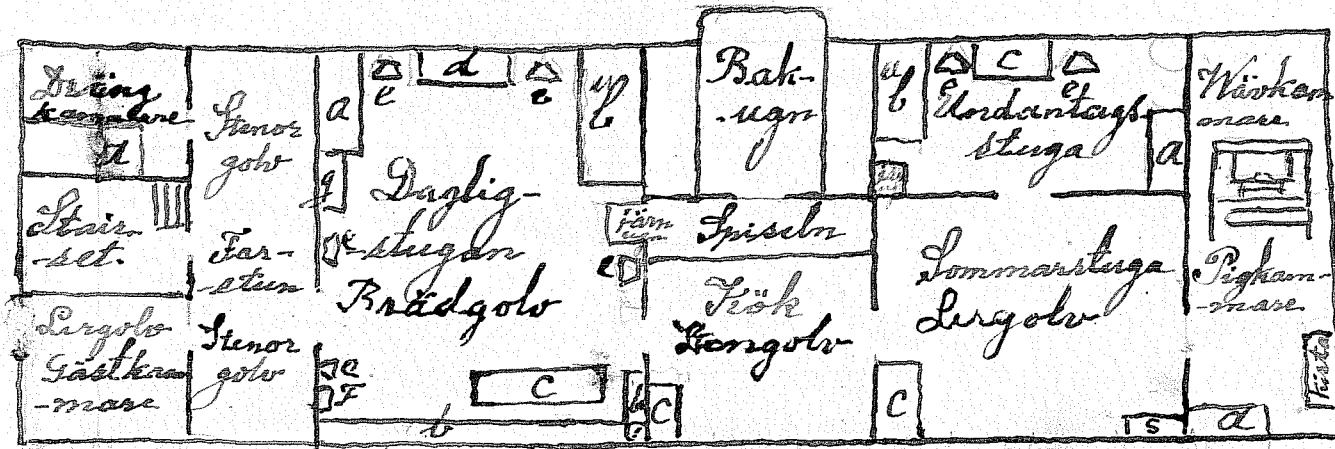 Dräng
kammare
a
Stair-
-set.
Lergolv
Gästkam
-mare
Stenor
golv
Far-
-stun
Stenor
golv
a
e
d
e
q
e
Daglig-
stugan
Brädgolv
e
F
c
b
b
Järn
ugn
e
Bak-
-ugn
Spiseln
Kök
Stengolv
c
b
e
c
e
Undantags-
stuga
a
Sommarstuga
Lergolv
c
s
Wävkam
mare
Pigkam-
-mare
Kista
a